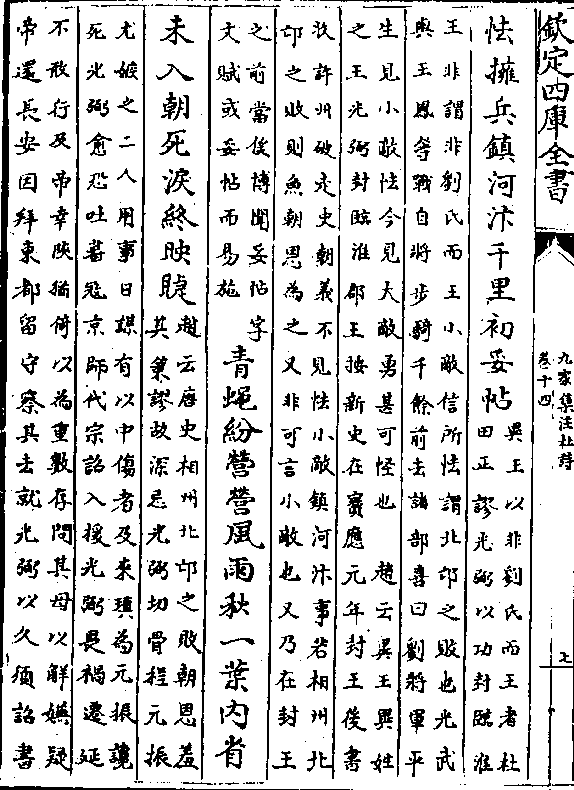 欽定四庫全書
九家集注杜詩
卷十四
七
怯擁兵鎮河汴千里初妥帖
異王以非劉氏而王者杜
田正謬光弼以功封臨淮
王非謂非劉氏而王小敵信所怯謂北邙之敗也光武
與王鳳等戰自將步騎千餘前去諸部喜曰劉將軍平
生見小敵怯今見大敵勇甚可怪也 趙云異王異姓
之王光弼封臨淮郡王按新史在寶應元年封王後書
收許州破走史朝義不見怯小敵鎮河汴事若相州北
邙之敗則魚朝恩為之又非可言小敵也又乃在封王
之前當俟博聞妥帖字
文賦或妥帖而易施
青蠅紛營營風雨秋一葉内省
未入朝死淚終映睫
趙云唐史相州北邙之敗朝恩羞
其策謬故深忌光弼切骨程元振
尤嫉之二人用事日謀有以中傷者及來瑱為元振讒
死光弼愈恐吐蕃冦京師代宗詔入援光弼畏禍遷延
不敢行及帝幸陜猶倚以為重數存問其母以解嫌疑
帝還長安因拜東都留守察其去就光弼以久須詔書